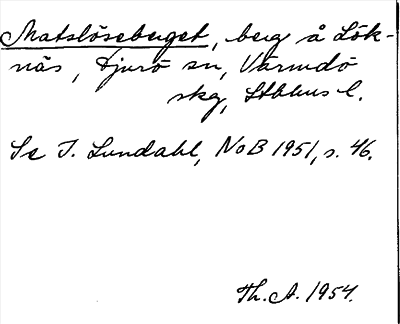 Matslöseberget, berg å Lök-
näs, Djurö sn, Värmdö
skg, Sthlms l.
Se I. Lundahl, NoB 1951, s. 46.
Th. A. 1954.